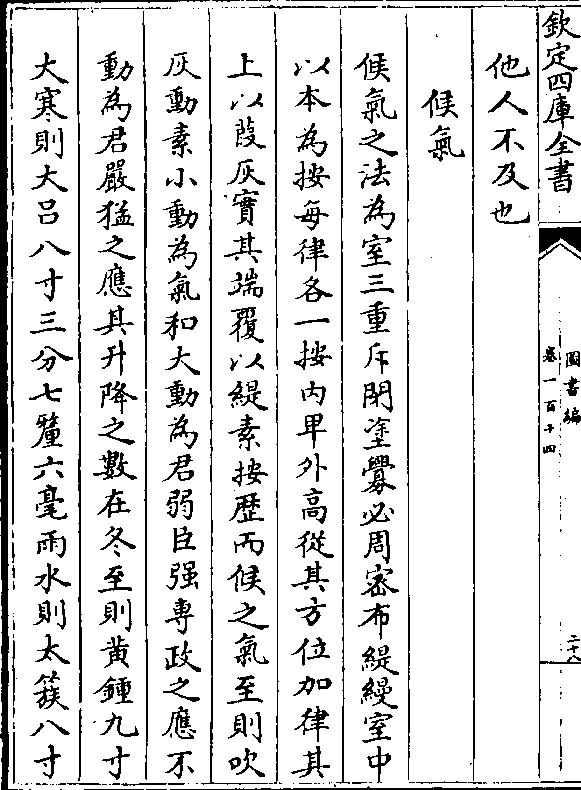 欽定四庫全書
圖書編
卷一百十四
二十八
他人不及也
候氣
候氣之法為室三重斥閉塗釁必周密布緹縵室中
以木為按每律各一按内卑外高從其方位加律其
上以葭灰實其端覆以緹素按歴而候之氣至則吹
灰動素小動為氣和大動為君弱臣强專政之應不
動為君嚴猛之應其升降之數在冬至則黄鍾九寸
大寒則大吕八寸三分七釐六毫雨水則太簇八寸